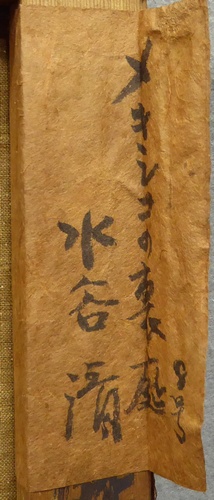 メキシコの裏庭
8号
水谷清